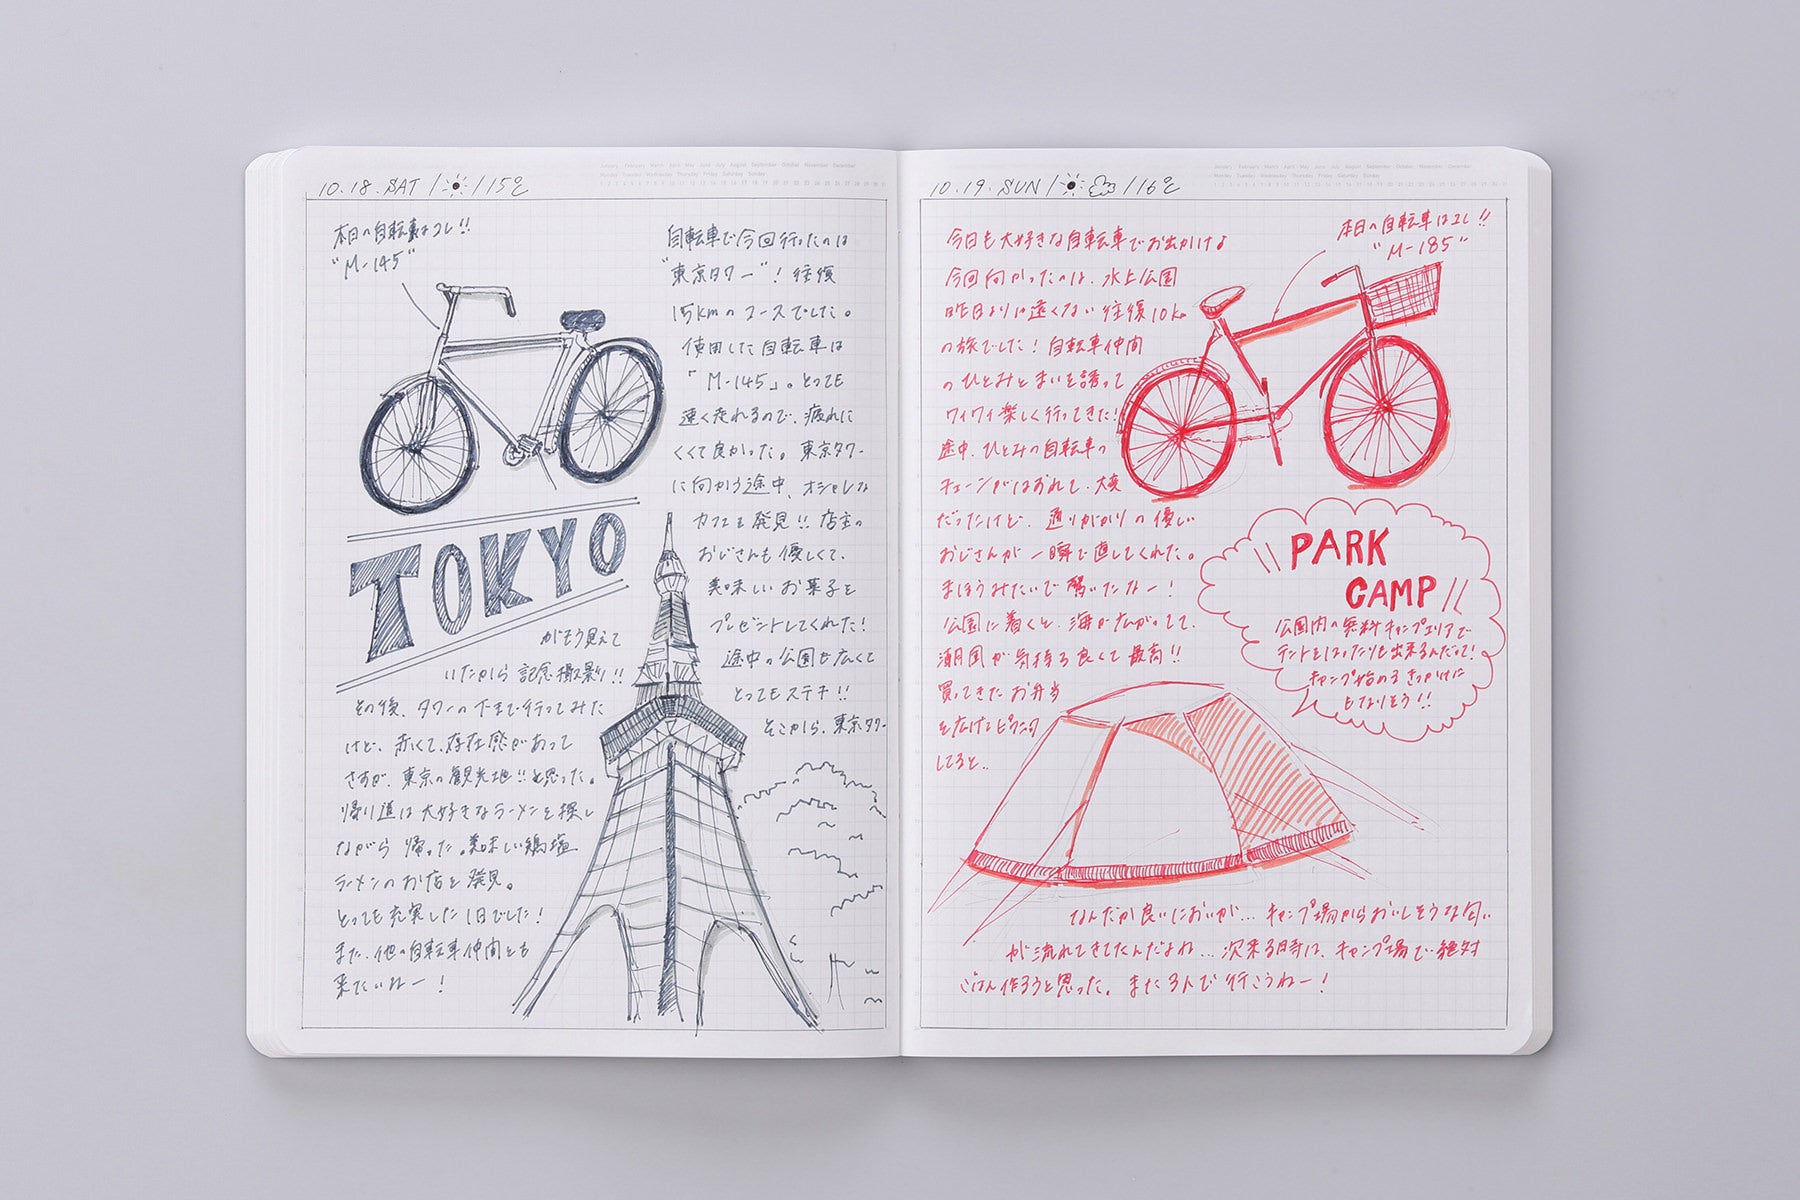 January February March April May June July August September October November December
Monday Tuesday Wednesday Thursday Friday Saturday Sunday
10.18.SAT / /15℃
本日の自転車はコレ!!
"M-145"
自転車で今回行ったのは
"東京タワー"！往復
15kmのコースでした。
使用した自転車は
「M-145」。とっても
速く走れるので、疲れに
くくて良かった。東京タワー
に向かう途中、オシャレな
カフェを発見!!店主の
おじさんも優しくて、
美味しいお菓子を
プレゼントしてくれた！
途中の公園も広くて
とってもステキ!!
そこから、東京タワー
TOKYO
がもう見えて
いたから記念撮影!!
その後、タワーの下まで行ってみた
けど、赤くて、存在感があって
さすが、東京の観光地!!と思った。
帰り道は大好きなラーメンを探し
ながら帰った。美味しい鶏塩
ラーメンのお店を発見。
とっても充実した1日でした！
また、他の自転車仲間とも
来たいねー！
January February March April May June July August September October November December
Monday Tuesday Wednesday Thursday Friday Saturday Sunday
10.19.SUN / /16℃
今日も大好きな自転車でお出かけよ
今回向かったのは、水上公園
昨日よりは遠くない往復10km
の旅でした！自転車仲間
のひとみとまいを誘って
ワイワイ楽しく行ってきた！
途中、ひとみの自転車の
チェーンがはずれて、大変
だったけど、通りがかりの優しい
おじさんが一瞬で直してくれた。
まほうみたいで驚いたなー！
公園に着くと、海が広がってて、
潮風が気持ち良くて最高!!
買ってきたお弁当
を広げてピクニック
してると..
本日の自転車はコレ!!
"M-185"
PARK
CAMP
公園内の無料キャンプエリアで
テントをはったりも出来るんだって！
キャンプ始めるきっかけに
もなりそう!!
なんだか良いにおいが...キャンプ場からおいしそうな匂い
が流れてきてたんだよね...次来る時は、キャンプ場で絶対
ごはん作ろうと思った。また3人で行こうねー！